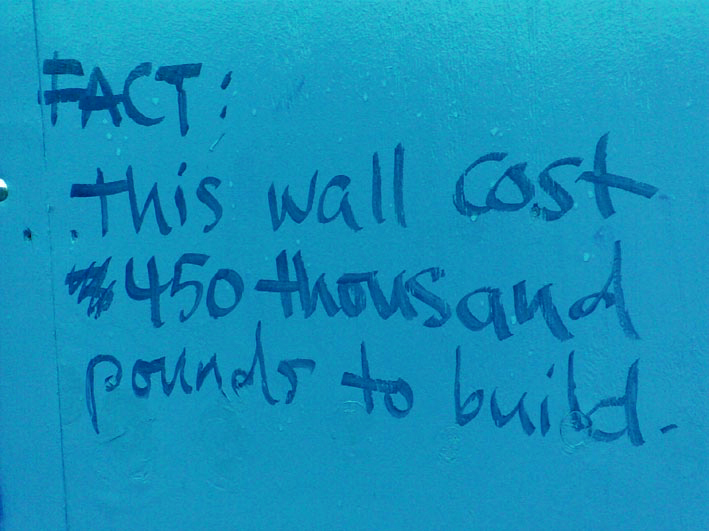 FACT:
this wall cost
450 thousand
pounds to build.